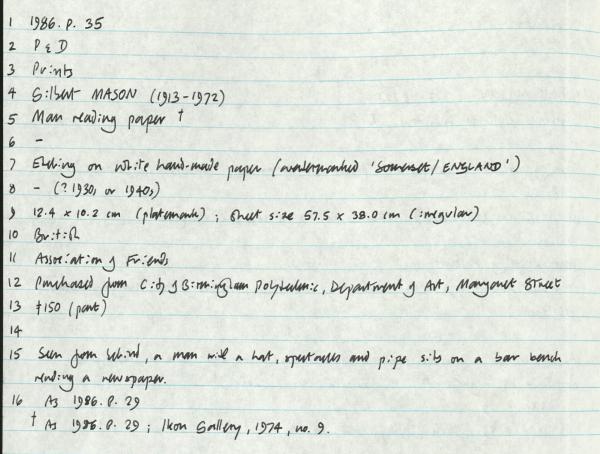 1 1986.P.35
2 P & D
3 Prints
4 Gilbert MASON (1913-1972)
5 Man reading paper †
6 -
7 Etching on white hand-made paper (watermarked 'Somerset/ENGLAND')
8 - (? 1930s or 1940s)
9 12.4 x 10.2 cm (platemark); sheet size 57.5 x 38.0 cm (irregular)
10 British
11 Association of Friends
12 Purchased from City of Birmingham Polytechnic, Department of Art, Margaret Street
13 £150 (part)
14
15 Seen from behind, a man with a hat, spectacles and pipe sits on a bar bench
reading a newspaper.
16 As 1986.P.29
† As 1986.P.29; Ikon Gallery, 1974, no. 9.